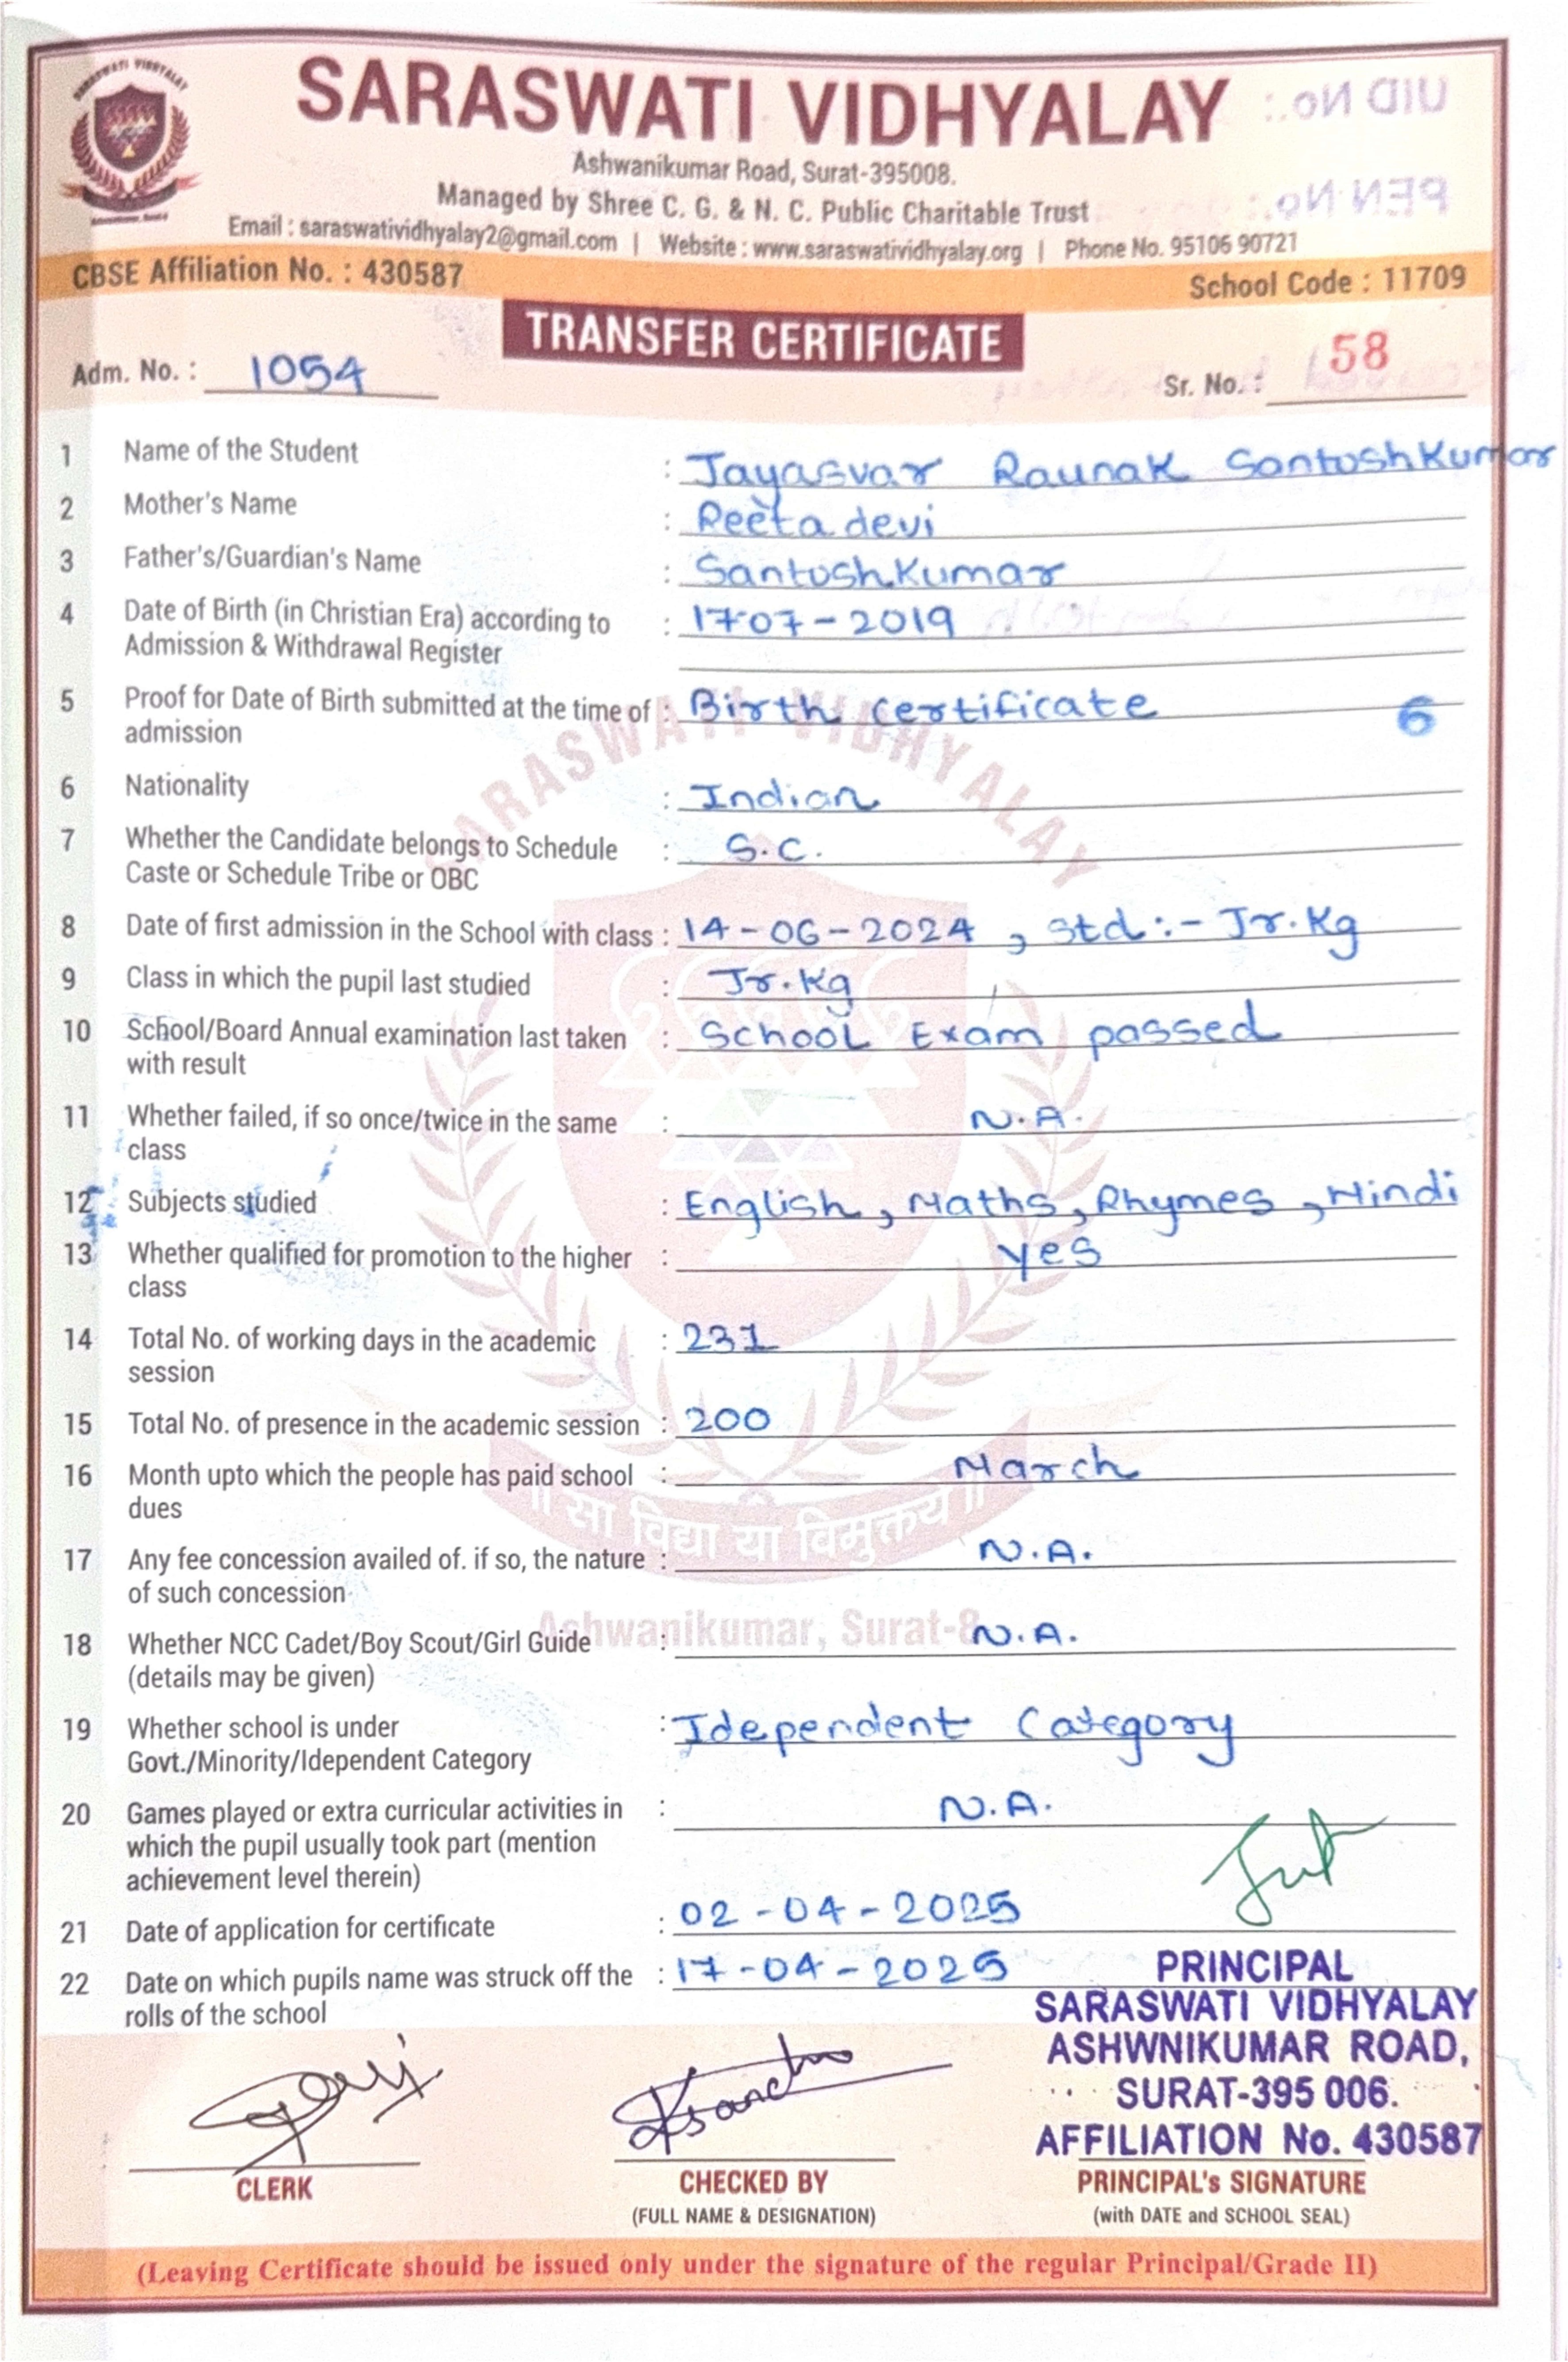 SARASWATI VIDHYALAY
SARASWATI VIDHYALAY
UID No.:
PEN No.:
Ashwanikumar Road, Surat-395008.
Managed by Shree C. G. & N. C. Public Charitable Trust
Email : saraswatividhyalay2@gmail.com | Website : www.saraswatividhyalay.org | Phone No. 95106 90721
CBSE Affiliation No. : 430587 School Code : 11709
TRANSFER CERTIFICATE
Adm. No. : 1054 Sr. No. : 58
1 Name of the Student : Jayasvar Raunak SantoshKumar
2 Mother's Name : Reeta devi
3 Father's/Guardian's Name : SantoshKumar
4 Date of Birth (in Christian Era) according to : 17-07-2019
Admission & Withdrawal Register
5 Proof for Date of Birth submitted at the time of : Birth Certificate 6
admission
6 Nationality : Indian
7 Whether the Candidate belongs to Schedule : S.C.
Caste or Schedule Tribe or OBC
8 Date of first admission in the School with class : 14-06-2024 , Std:- Jr.Kg
9 Class in which the pupil last studied : Jr.Kg
10 School/Board Annual examination last taken : School Exam passed
with result
11 Whether failed, if so once/twice in the same : N.A.
class
12 Subjects studied : English, Maths, Rhymes, Hindi
13 Whether qualified for promotion to the higher : yes
class
14 Total No. of working days in the academic : 231
session
15 Total No. of presence in the academic session : 200
16 Month upto which the people has paid school : March
dues
17 Any fee concession availed of. if so, the nature : N.A.
of such concession
18 Whether NCC Cadet/Boy Scout/Girl Guide : N.A.
(details may be given)
19 Whether school is under : Idependent Category
Govt./Minority/Idependent Category
20 Games played or extra curricular activities in : N.A.
which the pupil usually took part (mention
achievement level therein)
21 Date of application for certificate : 02-04-2025
22 Date on which pupils name was struck off the : 17-04-2025
rolls of the school
SARASWATI VIDHYALAY
॥ सा विद्या या विमुक्तये ॥
Ashwanikumar, Surat-8
PRINCIPAL
SARASWATI VIDHYALAY
ASHWNIKUMAR ROAD,
SURAT-395 006.
AFFILIATION No. 430587
CLERK CHECKED BY PRINCIPAL's SIGNATURE
(FULL NAME & DESIGNATION) (with DATE and SCHOOL SEAL)
(Leaving Certificate should be issued only under the signature of the regular Principal/Grade II)